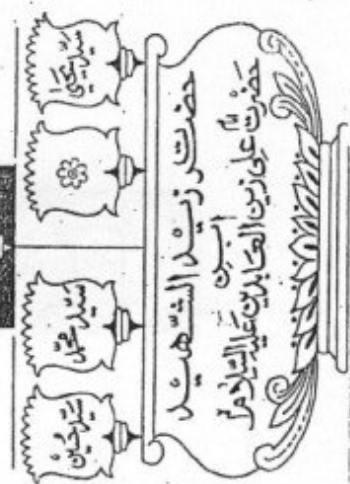 سید یحییٰ
سید محمد
سید حسین
حضرت زید الشہید
ابن
حضرت علی زین العابدین علیہ السلام